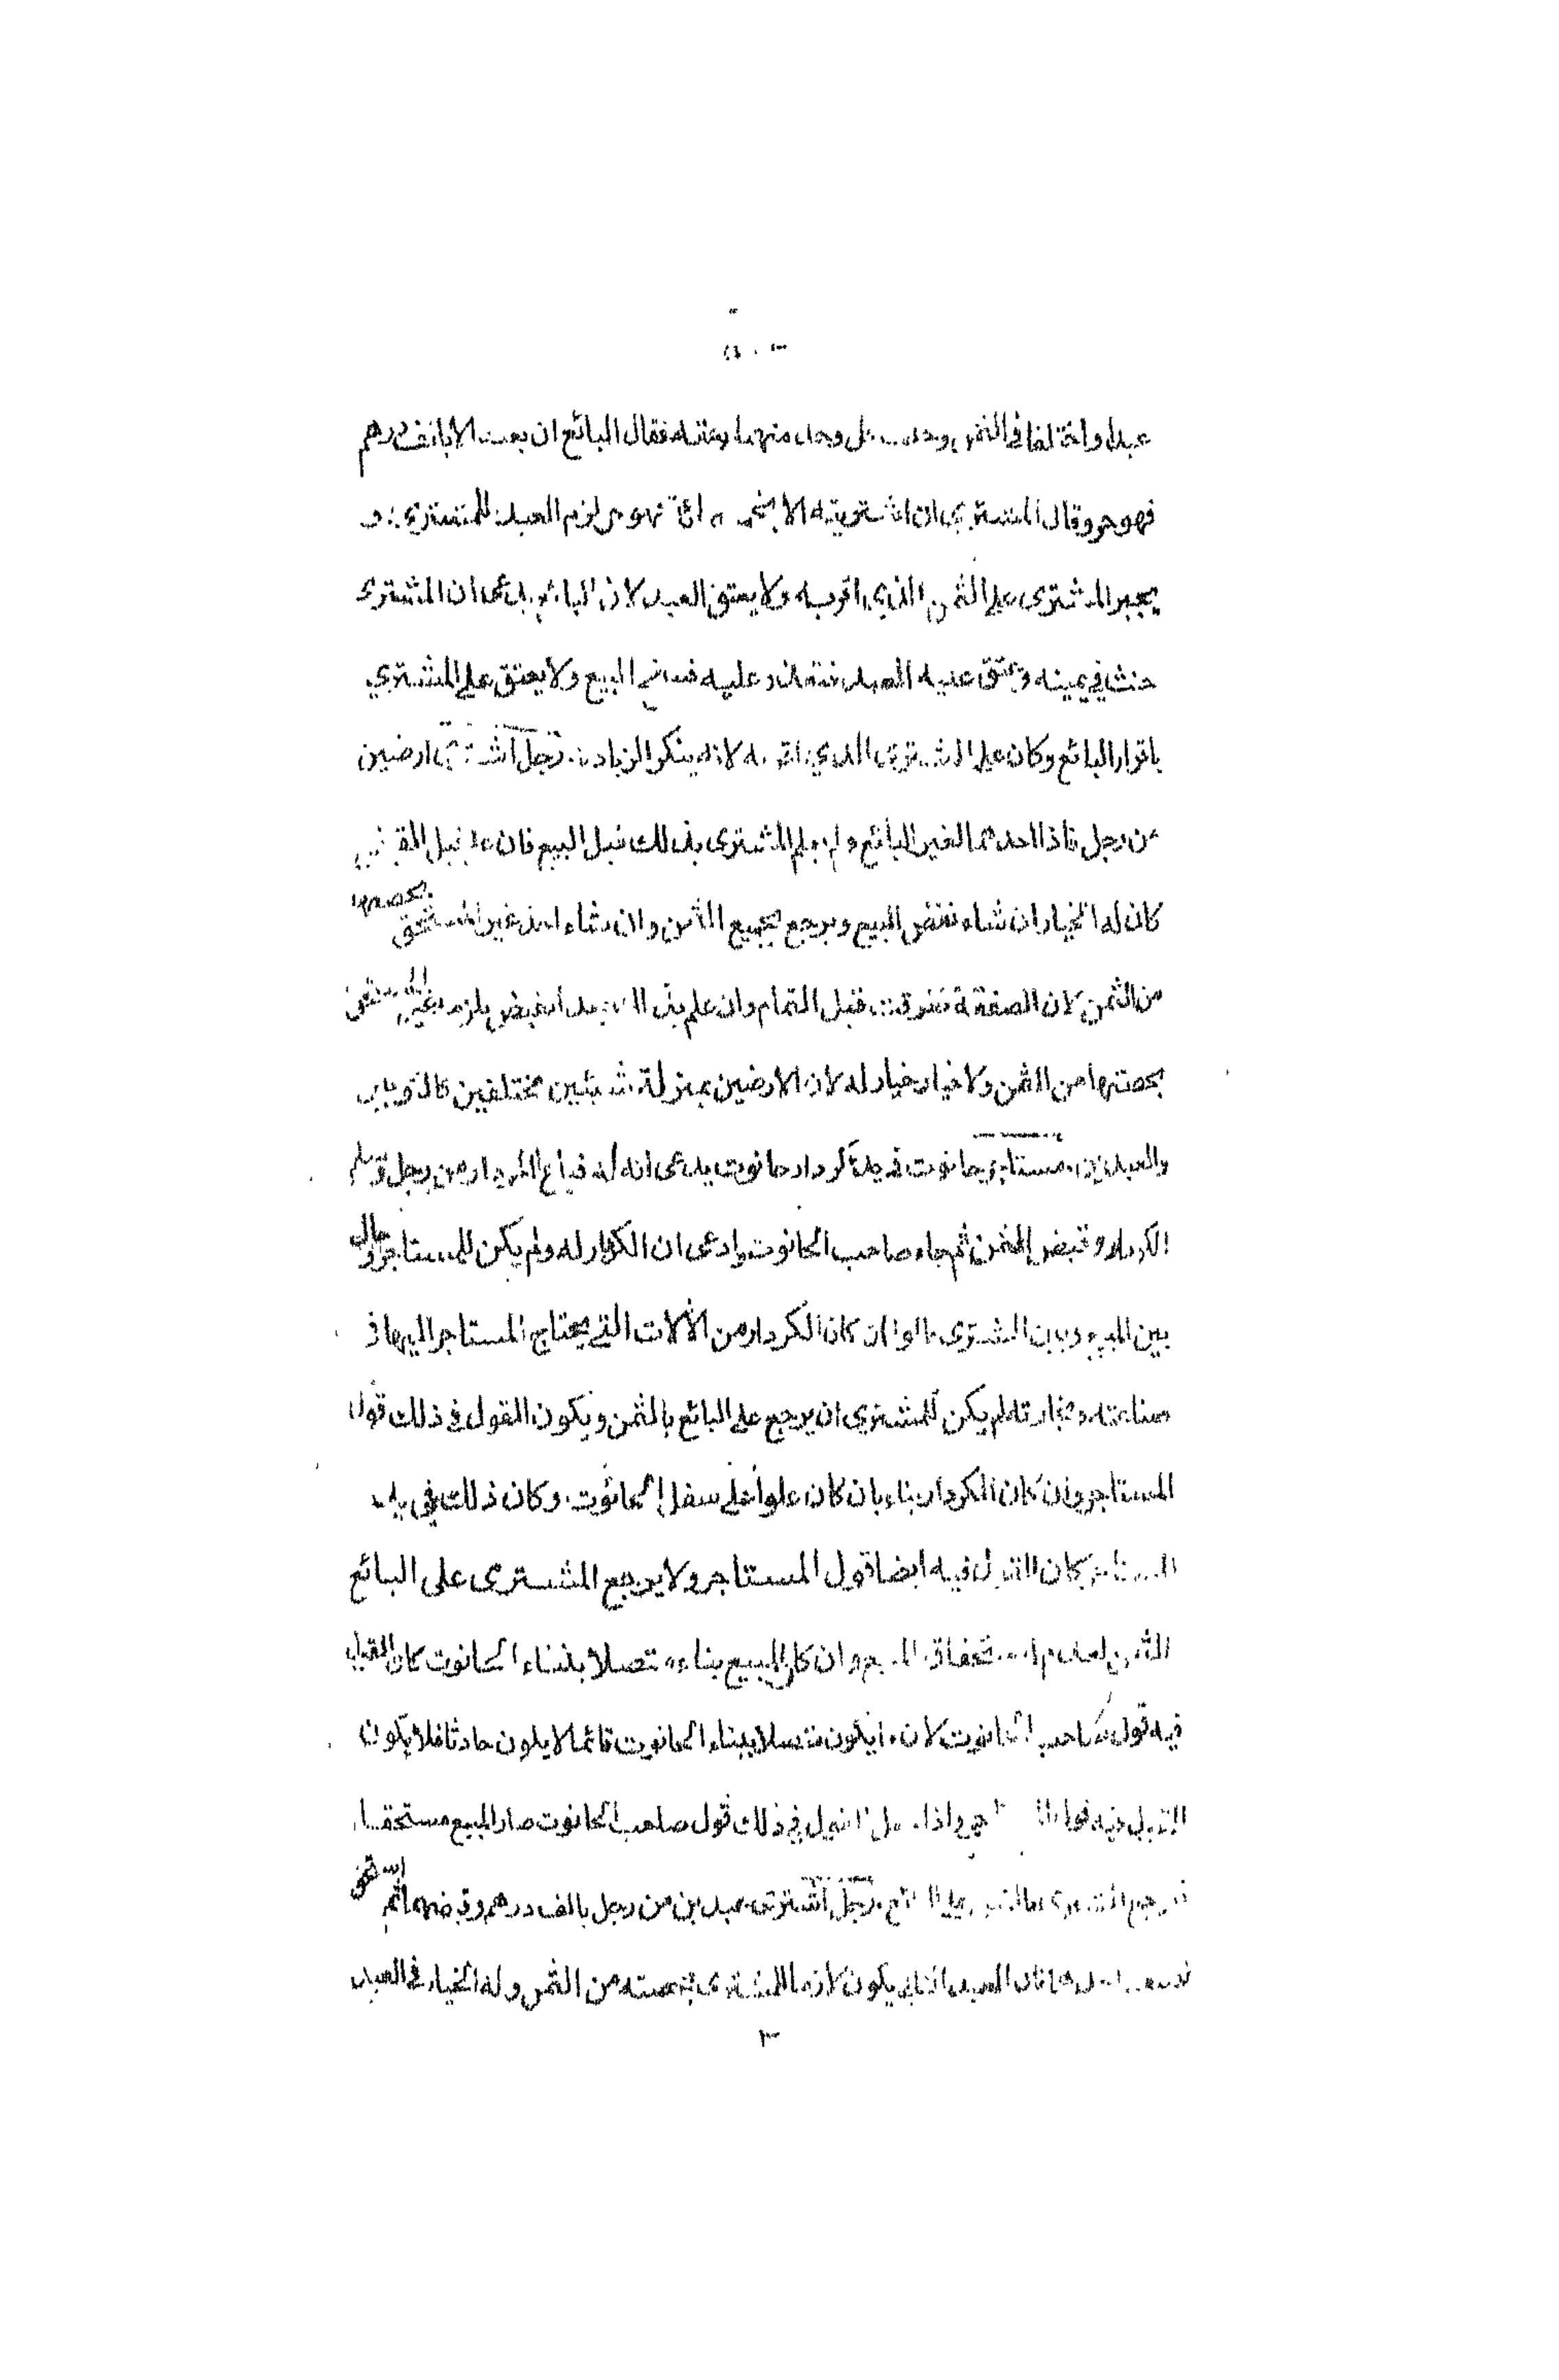 عبدا واختلفا في الثمن وحلف كل وحد منهما بعتقه فقال البائع ان بعت الا بالف درهم
فهو حر وقال المشتري ان اشتريته الا فهو حر لزم العبد للمشتري و
يجبر المشتري على الثمن الذي اقر به ولا يعتق العبد لان البائع يدعى ان المشترى
حنث في يمينه وعتق عليه العبد عليه البيع ولا يعتق على المشتري
باقرار البائع وكان على المشترى الذي اقر به لانه ينكر الزيادة رجل اشترى ارضين
من رجل فاذا احدهما لغير البائع ولم يعلم المشترى بذلك قبل البيع فان علم قبل القبض
كان له الخيار ان شاء نقض البيع ويرجع بجميع الثمن وان شاء اخذ غير المستحق بحصتها
من الثمن لان الصفقة تفرقت قبل التمام وان علم بعد القبض يلزمه غير المستحق
بحصتها من الثمن ولا خيار خيار له لان الارضين بمنزلة شيئين مختلفين كالثوبين
والعبدين مستاجر حانوت في يده كردار حانوت يدعى انه له فباع الكردار من رجل وسلم
الكردار وقبض الثمن ثم جاء صاحب الحانوت وادعى ان الكردار له ولم يكن للمستاجر وحال
بين المبيع وبين المشترى قالوا ان كان الكردار من الآلات التي يحتاج المستاجر اليها في
صناعته وتجارته لم يكن للمشتري ان يرجع على البائع بالثمن ويكون القول في ذلك قول
المستاجر وان كان الكردار بناء بان كان علوا على سفل الحانوت وكان ذلك في يد
المستاجر كان القول فيه ايضا قول المستاجر ولا يرجع المشترى على البائع
الثمن لعدم استحقاق المبيع وان كان المبيع بناء متصلا ببناء الحانوت كان القول
فيه قول صاحب الحانوت لان ما يكون متصلا ببناء الحانوت قائما لا يكون حادثا فلا يكون
القول فيه قول واذا القول في ذلك قول صاحب الحانوت صار المبيع مستحقا
فيرجع المشترى بالثمن على البائع رجل اشترى عبدين من رجل بالف درهم وقبضهما ثم استحق
نصف احدهما فان العبد الثاني يكون لازما للمشترى بحصته من الثمن وله الخيار في العبد
٣